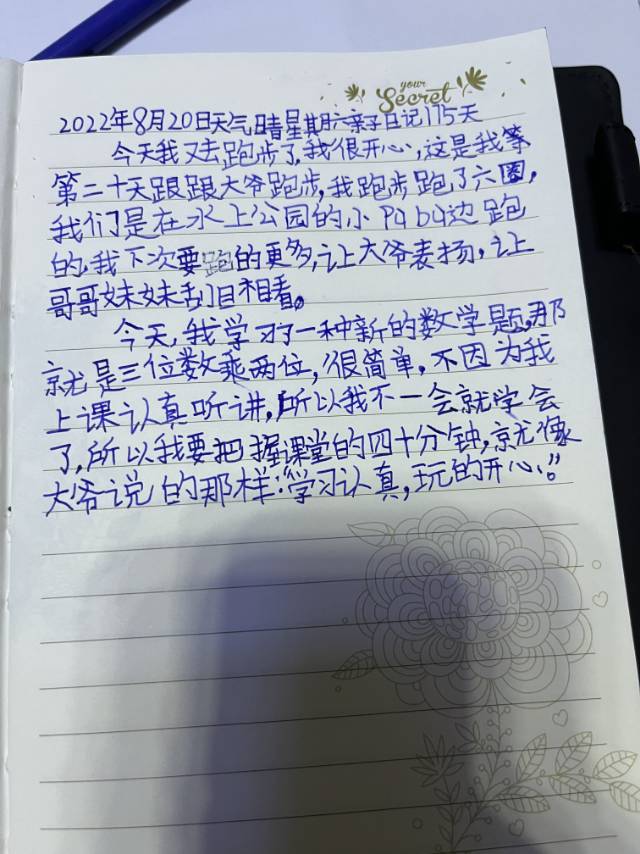 your
Secret
2022年8月20日天气晴星期六亲子日记175天
今天我又去跑步了,我很开心,这是我等
第二十天跟跟大爷跑步,我跑步跑了六圈,
我们是在水上公园的小pq bq边跑
的,我下次要跑的更多,让大爷表扬,让
哥哥妹妹刮目相看。
今天,我学习了一种新的数学题,那
就是三位数乘两位,很简单,不因为我
上课认真听讲,所以我不一会就学会
了,所以我要把握课堂的四十分钟,就像
大爷说的那样:“学习认真,玩的开心!”